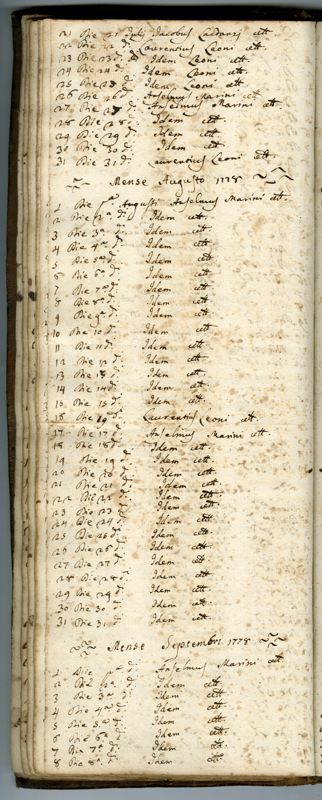 21 Die 21 Julij Jacobus Cadorzi cett.
22 Die 22 d: Laurentius Leoni cett.
23 Die 23 d: Idem Leoni cett.
24 Die 24 d: Idem Leoni cett.
25 Die 25 d: Idem Leoni cett.
26 Die 26 d: Anselmus Marini cett.
27 Die 27 d: Anselmus Marini cett.
28 Die 28 d: Idem cett.
29 Die 29 d: Idem cett.
30 Die 30 d: Idem cett.
31 Die 31 d: Laurentius Leoni cett.
Mense Augusto 1778
1 Die pa Augusti Anselmus Marini cett.
2 Die 2a d: Idem cett.
3 Die 3a d: Idem cett.
4 Die 4a d: Idem cett.
5 Die 5a d: Idem cett.
6 Die 6a d: Idem cett.
7 Die 7a d: Idem cett.
8 Die 8a d: Idem cett.
9 Die 9a d: Idem cett.
10 Die 10 d: Idem cett.
11 Die 11 d: Idem cett.
12 Die 12 d: Idem cett.
13 Die 13 d: Idem cett.
14 Die 14 d: Idem cett.
15 Die 15 d: Idem cett.
16 Die d: Laurentius Leoni cett.
17 Die 17 d: Anselmus Marini cett.
18 Die 18 d: Idem cett.
19 Die 19 d: Idem cett.
20 Die 20 d: Idem cett.
21 Die 21 d: Idem cett.
22 Die 22 d: Idem cett.
23 Die 23 d: Idem cett.
24 Die 24 d: Idem cett.
25 Die 25 d: Idem cett.
26 Die 26 d: Idem cett.
27 Die 27 d: Idem cett.
28 Die 28 d: Idem cett.
29 Die 29 d: Idem cett.
30 Die 30 d: Idem cett.
31 Die 31 d: Idem cett.
Mense Septembri 1778
1 Die d: Anselmus Marini cett.
2 Die 2a d: Idem cett.
3 Die 3a d: Idem cett.
4 Die 4a d: Idem cett.
5 Die 5a d: Idem cett.
6 Die 6a d: Idem cett.
7 Die 7a d: Idem cett.
8 Die 8a d: Idem cett.